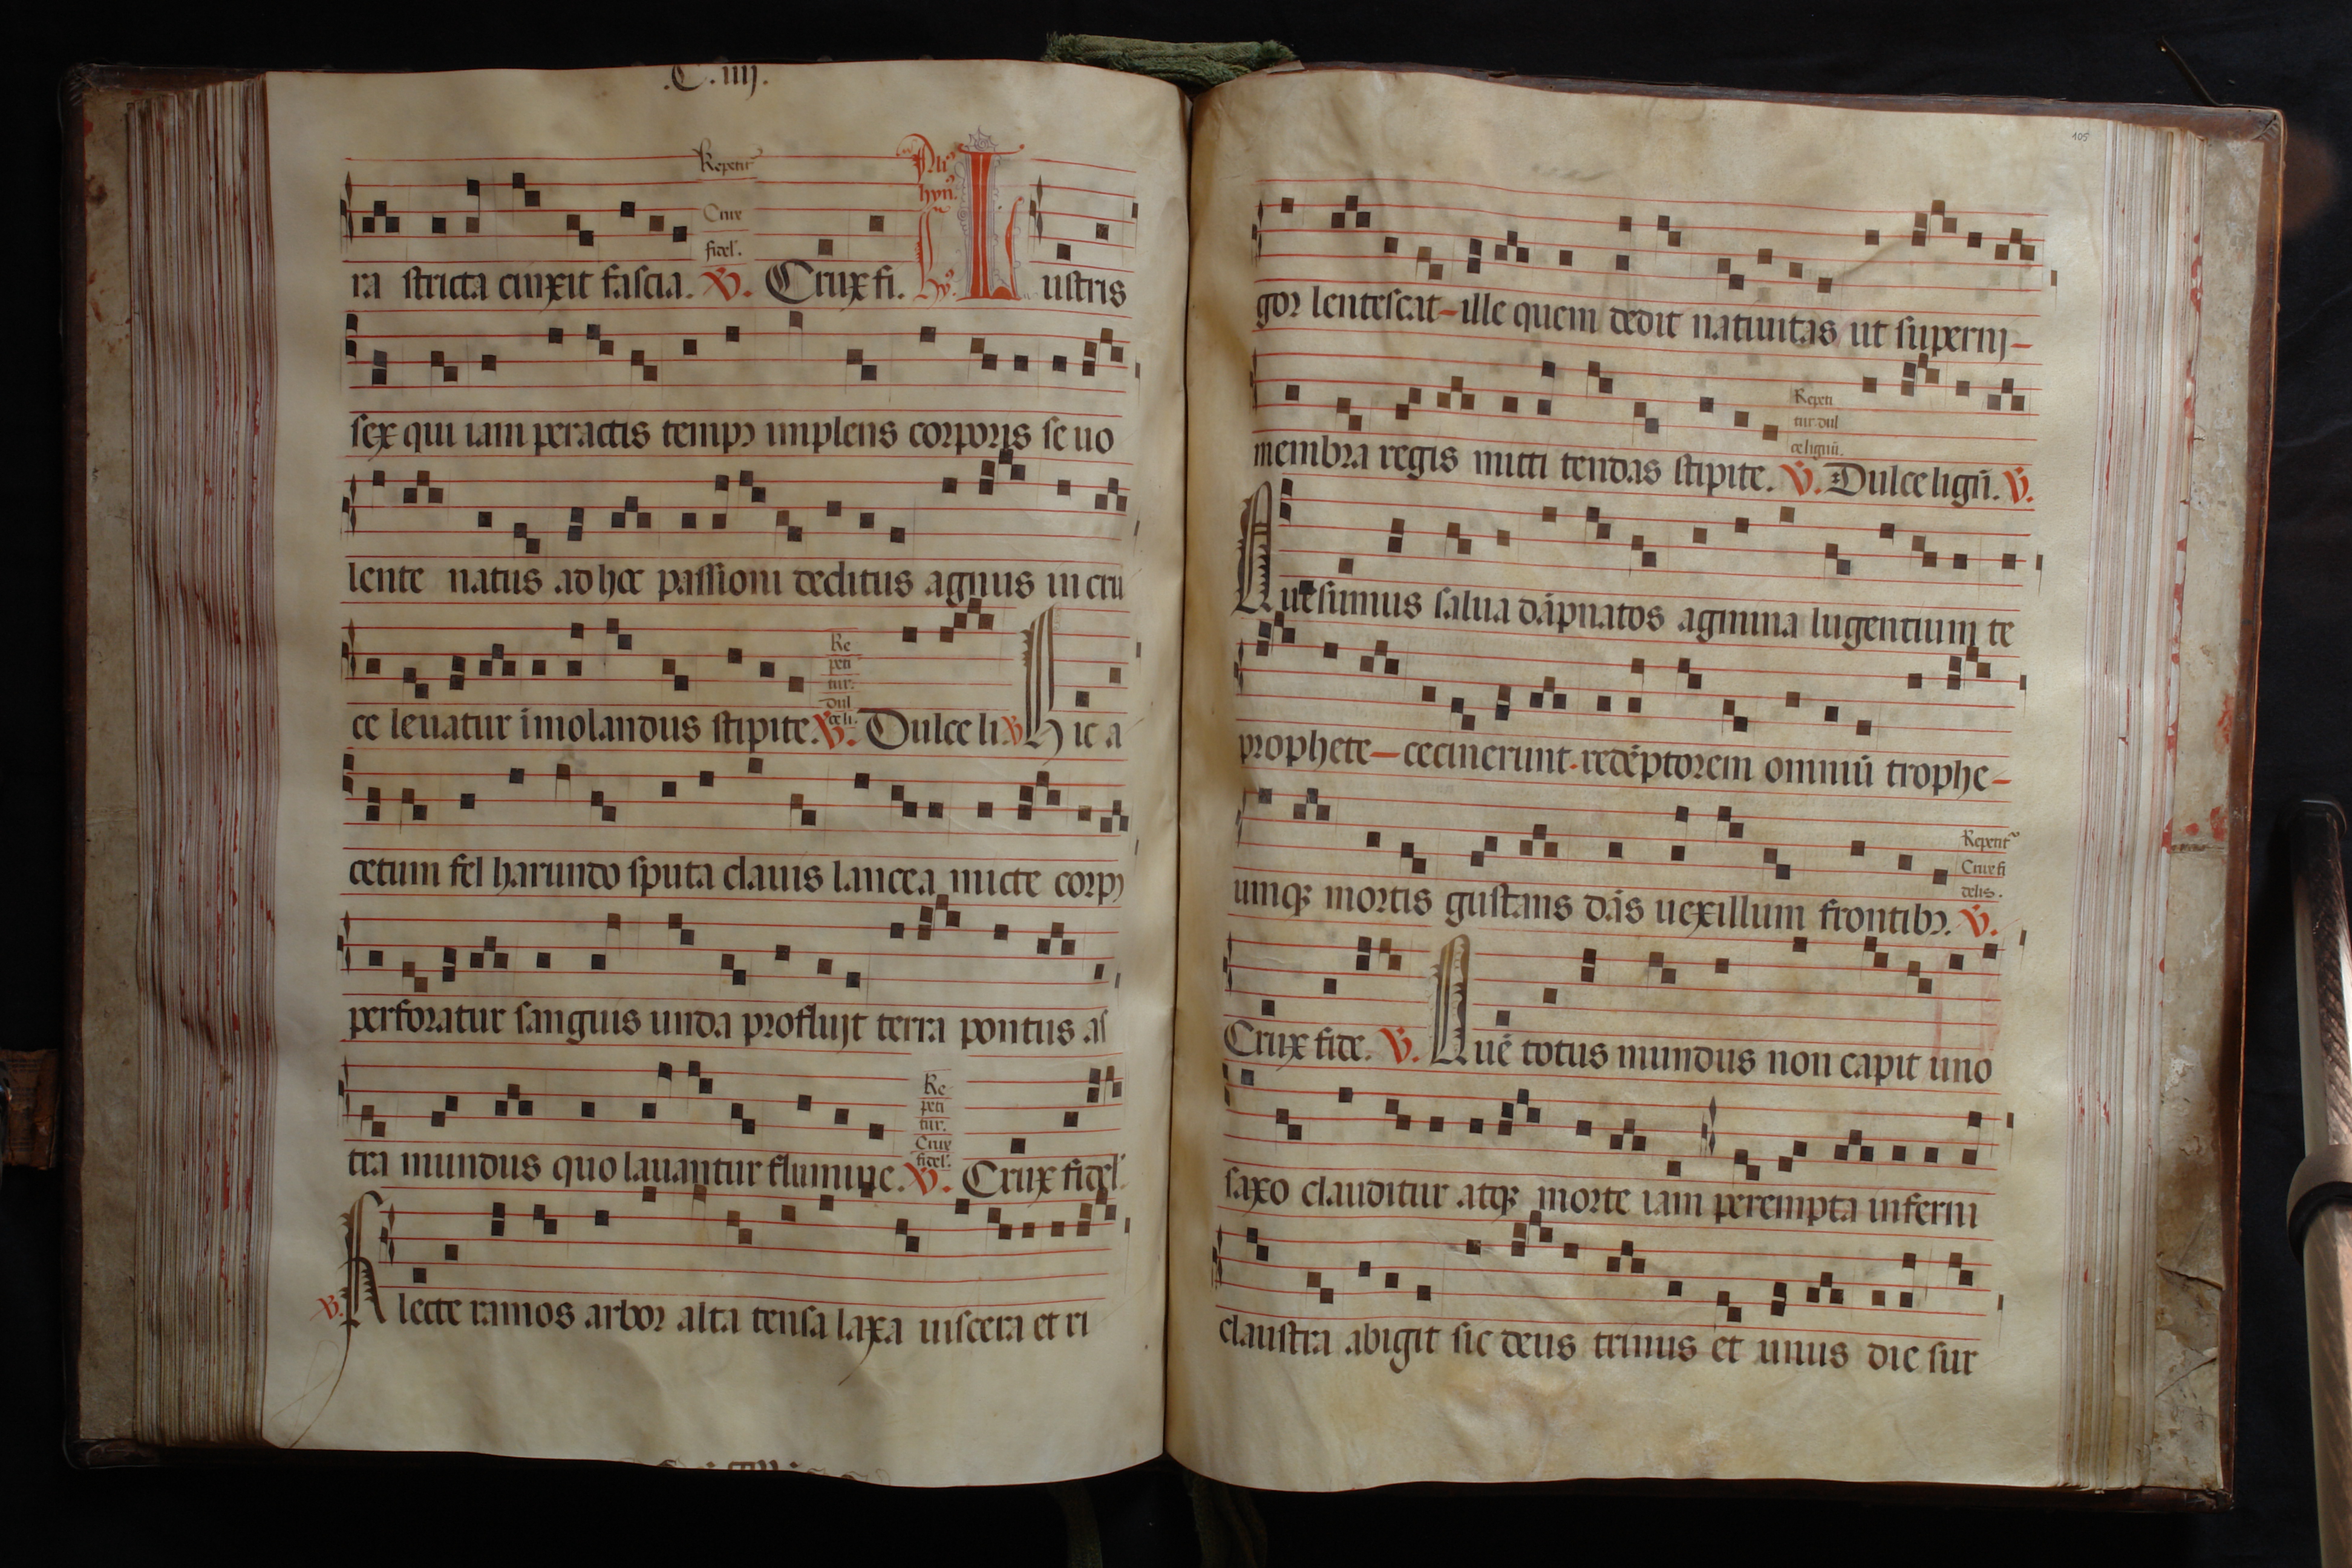 .C.iiij.
Repetit᷑
Crux
fidel᷑.
Ali᷑
hyn᷑.
ra stricta cinxit fascia. V. Crux fi. Hy᷑. Lustris
sex qui iam peractis tempꝯ implens corporis se uo
lente natus ad hoc passioni deditus agnus in cru
Re
peti
tur.
dul
ce li.
ce leuatur ĩmolandus stipite. V. Dulce li V. Hic a
cetum fel harundo sputa clauis lancea micte corpꝯ
perforatur sanguis unda profluijt terra pontus as
Re
peti
tur.
Crux
fidel᷑.
tra mundus quo lauantur flumine. V. Crux fidel᷑.
V. Flecte ramos arbor alta tensa laxa uiscera et ri
105
gor lentescat-ille quem dedit natiuitas ut supernj-
Repeti
tur dul
ce lignũ.
membra regis mitti tendas stipite. V. Dulce ligũ. V.
Quesumus salua dãpnatos agmina lugentium te
prophete-cecinerunt-redẽptorem omniũ trophe-
Repetit᷑
Crux fi
delis.
umqꝫ mortis gustans dãs uexillum frontibꝯ. V.
Crux fide. V. Quẽ totus mundus non capit uno
saxo clauditur atqꝫ morte iam perempta inferni
claustra abigit sic deus trinus et unus die sur